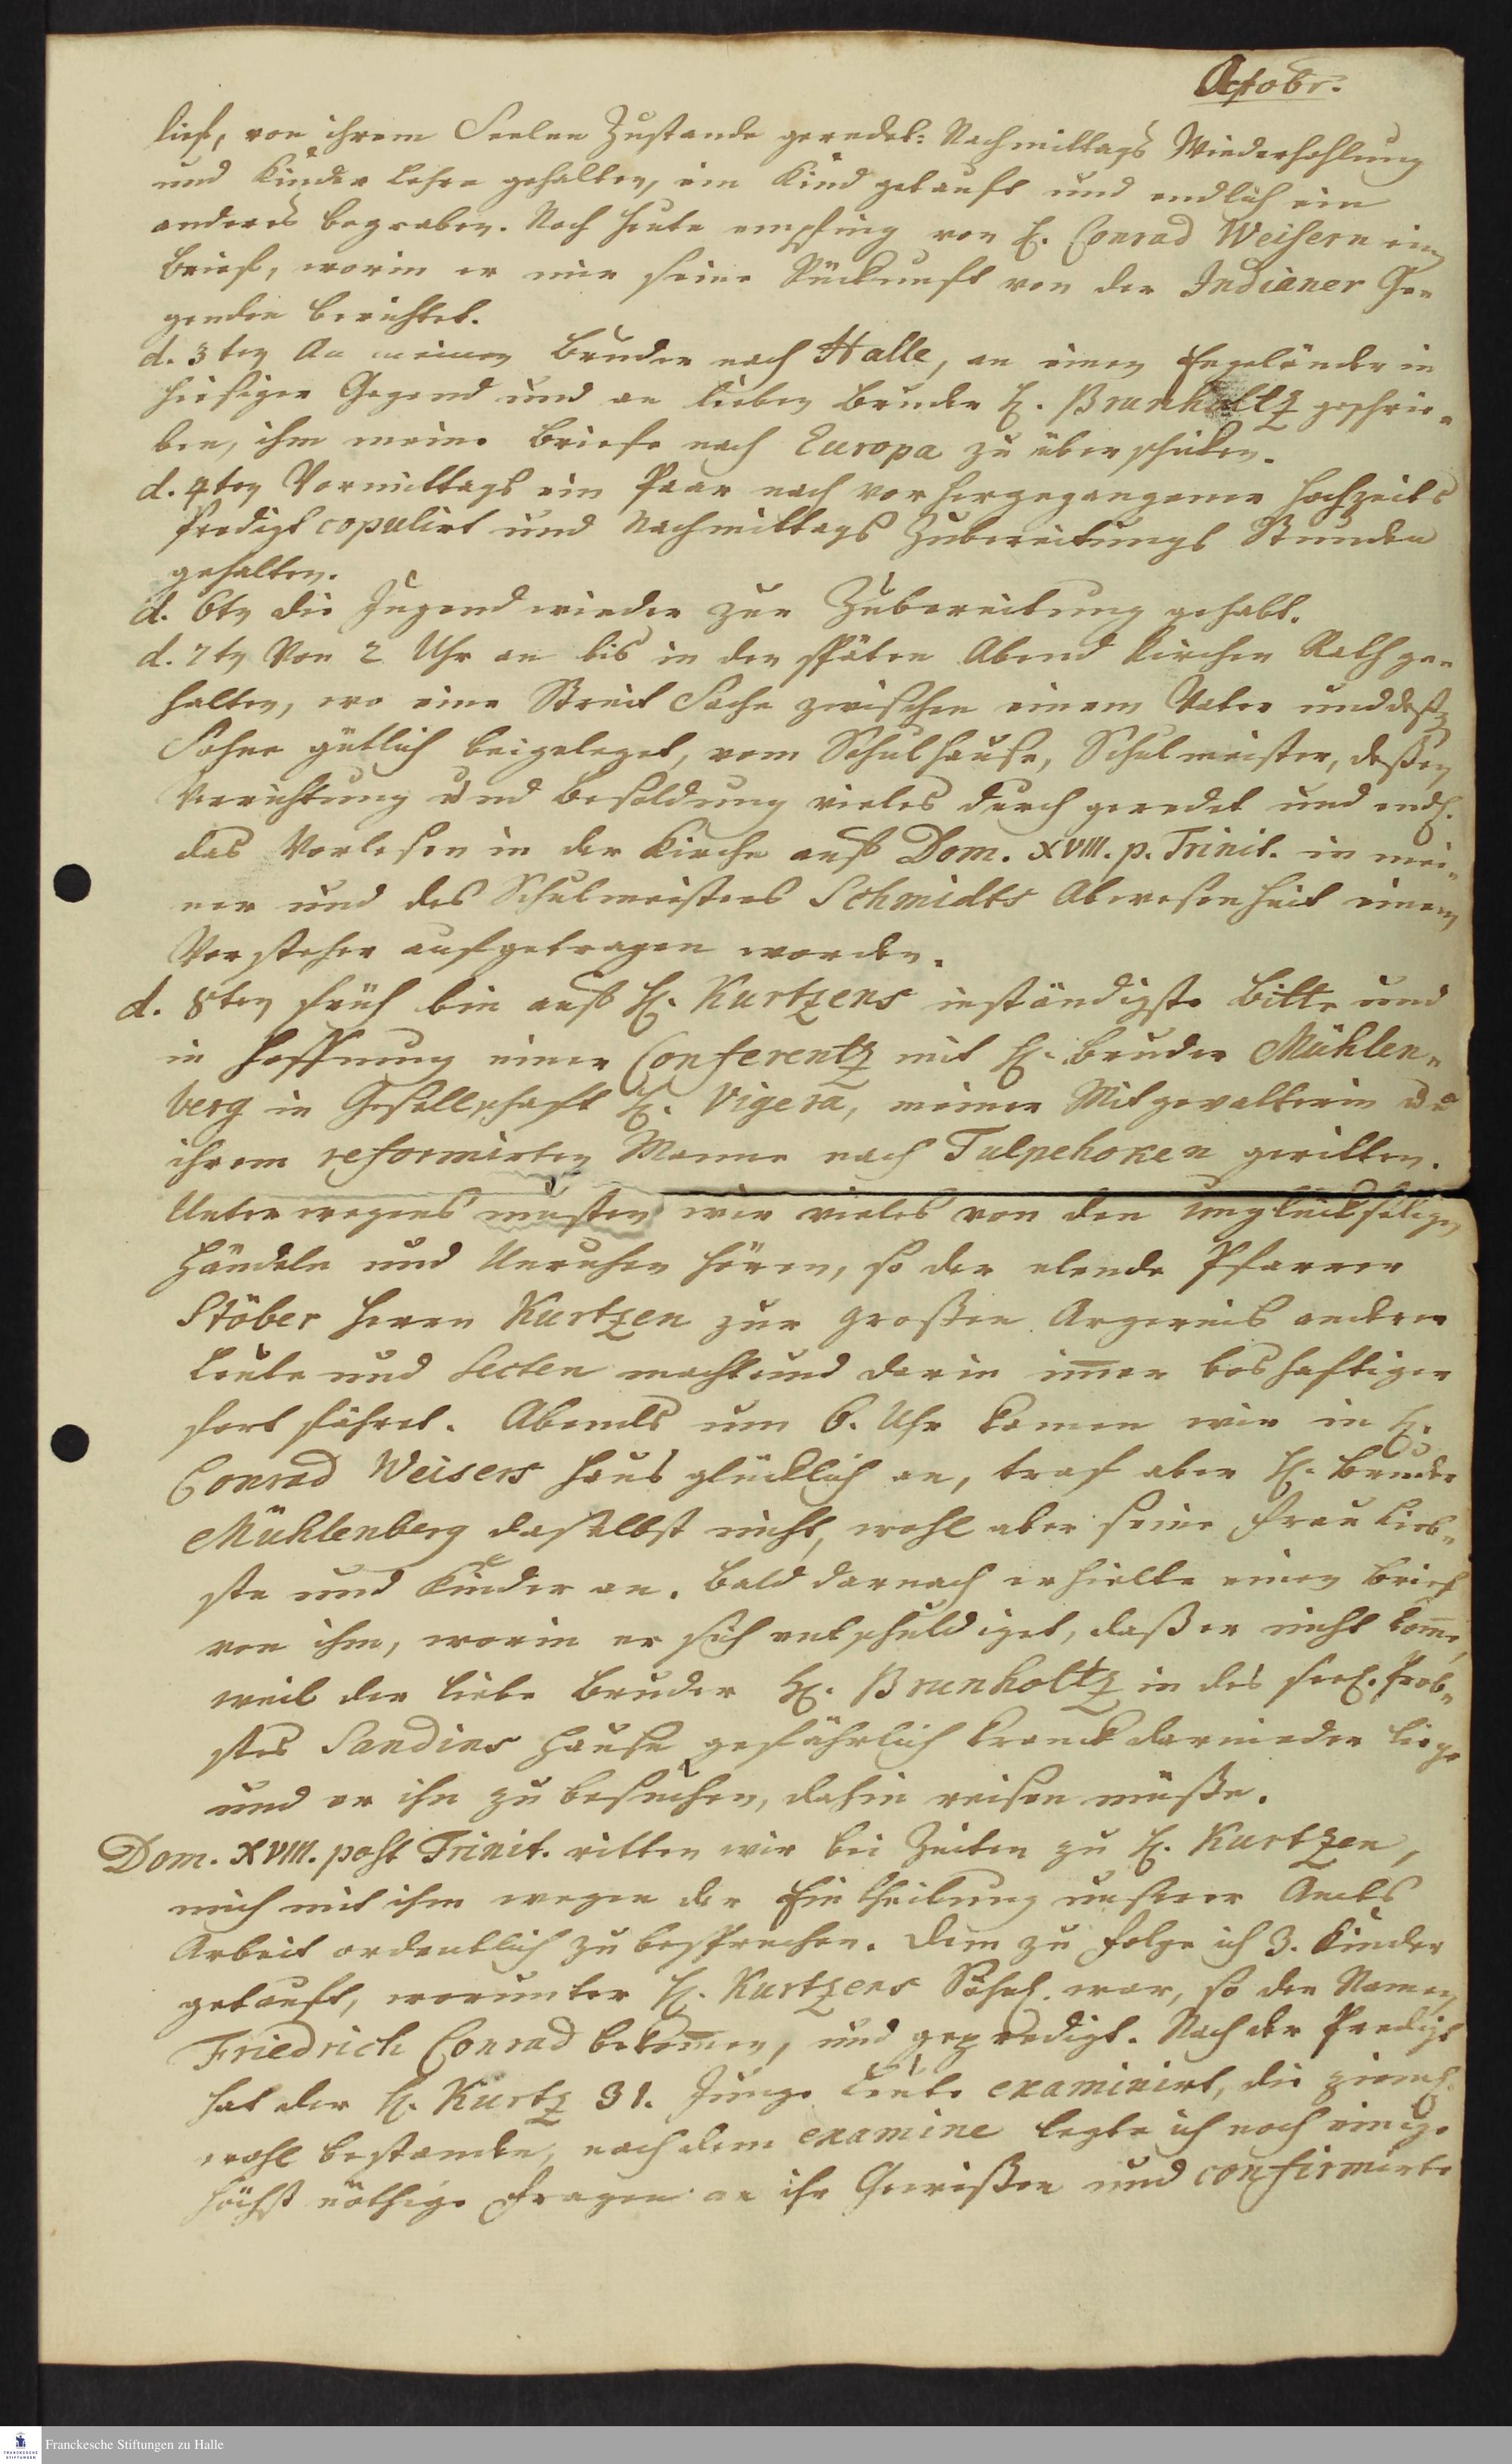 Octobr.
lich, von ihrem Seelen Zustande geredet: Nachmittags Wiederhohlung
und Kinder Lehre gehalten, ein Kind getauft und endlich ein
anderes begraben. Noch heute empfing von H. Conrad Weisern ein
Brief, worin er mir seine Rückunft von der Indianer Ge-
genden berichtet.
d. 3ten An meinen Bruder nach Halle, an einen Engeländer in
hiesiger Gegend und an lieben Bruder H. Brunholtz geschrie-
ben, ihm meine Briefe nach Europa zu überschicken.
d. 4ten Vormittags ein Paar nach vorhergegangener Hochzeits
Predigt copulirt und Nachmittags Zubereitungs Stunden
gehalten.
d. 6ten die Jugend wieder zur Zubereitung gehabt.
d. 7ten Von 2 Uhr an bis in den späten Abend Kirchen Rath ge-
halten, wo eine Streit Sache zwischen einem Vater und deßen
Sohne gütlich beigeleget, vom Schulhause, Schulmeister, deßen
Verrichtung und Besoldung vieles durch geredet und endl.
das Vorlesen in der Kirche auf Dom. XVIII. p. Trinit. in mei-
ner und des Schulmeisters Schmidts Abwesenheit einem
Vorsteher aufgetragen worden.
d. 8ten früh bin auf H. Kurtzens inständigste Bitte und
in Hoffnung einer Conferentz mit H. Bruder Mühlen-
berg in Gesellschaft H. Vigera, meiner Mitgevatterin u
ihrem reformirten Manne nach Tulpehoken geritten.
Unterwegens musten wir vieles von den unglückseligen
Händeln und Unruhen hören, so der elende Pfarrer
Stöber Herrn Kurtzen zur großen Argernis anderer
Leute und Secten macht und darin imer boshaftiger
fort fähret. Abends um 6. Uhr kamen wir in H.
Conrad Weisers Haus glücklich an, traf aber H. Bruder
Mühlenberg daselbst nicht, wohl aber seine Frau Lieb-
ste und Kinder an. Bald darnach erhielte einen Brief
von ihm, worin er sich entschuldiget, daß er nicht kome,
weil der liebe Bruder H. Brunholtz in des seel. Prob-
stes Sandins Hause gefährlich kranck darnieder liege
und er ihn zu besuchen, dahin reisen müße.
Dom. XVIII. post Trinit. ritten wir bei Zeiten zu H. Kurtzen,
mich mit ihm wegen der Eintheilung unserer Amts
Arbeit ordentlich zu besprechen. Dem zu folge ich 3. Kinder
getauft, worunter H. Kurtzens Söhnl. war, so den Namen
Friedrich Conrad bekomen, und geprediget. Nach der Predigt
hat der H. Kurtz 31. junge Leute examinirt, die zieml.
wohl bestanden, nach dem examine legte ich noch einige
höchst nöthige Fragen an ihr Gewißen und confirmirte
Franckesche Stiftungen zu Halle